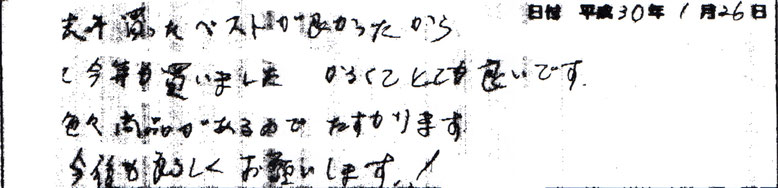 日付 平成30年1月26日
去年買ったベストが良かったから
と今年も買いました かるくてとても良いです.
色々商品があるのでたすかります
今後も良ろしくお願いします.